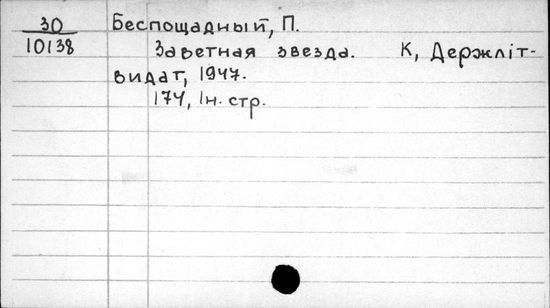 30 Беспощадный, П.
10138 Заветная звезда. К, Держліт-
видат, 1947.
174, Ін. стр.